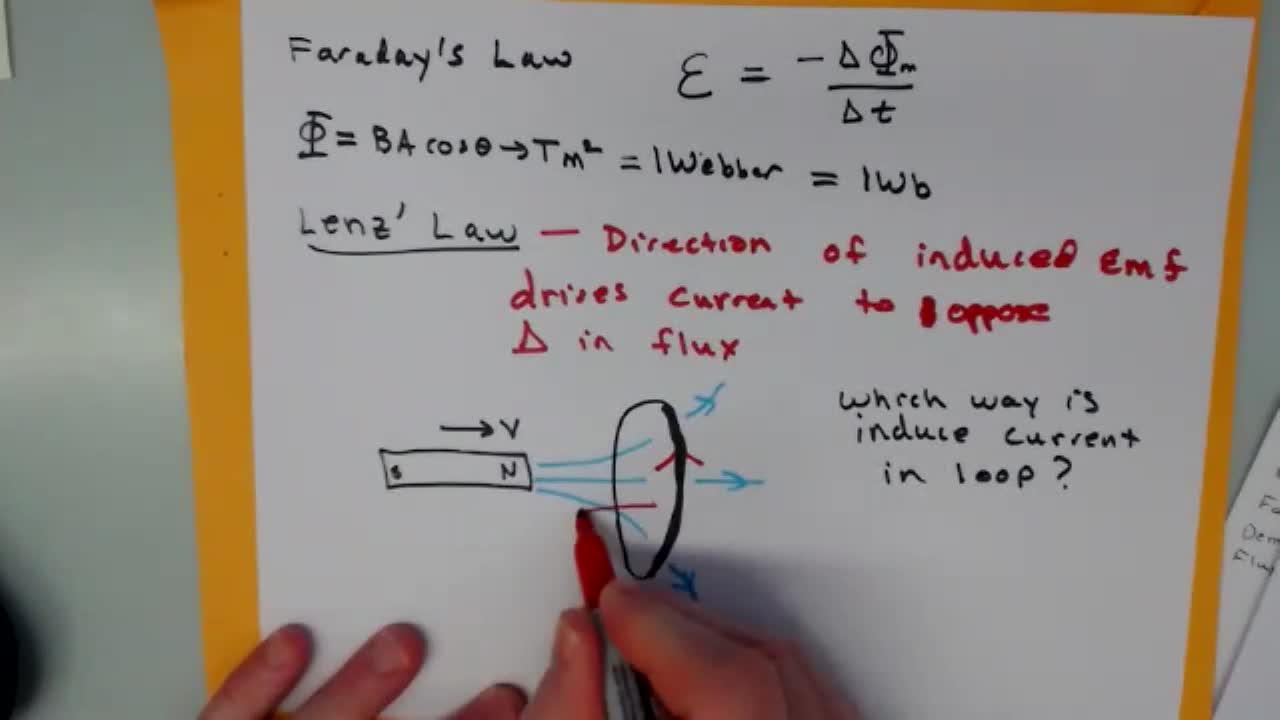 Faraday's Law ℰ = -ΔΦm/Δt
Φ = BA cosθ → Tm² = 1 Webber = 1Wb
Lenz' Law — Direction of induced Emf
drives current to oppose
Δ in flux
→ V
S N
which way is
induce current
in loop?
Dem